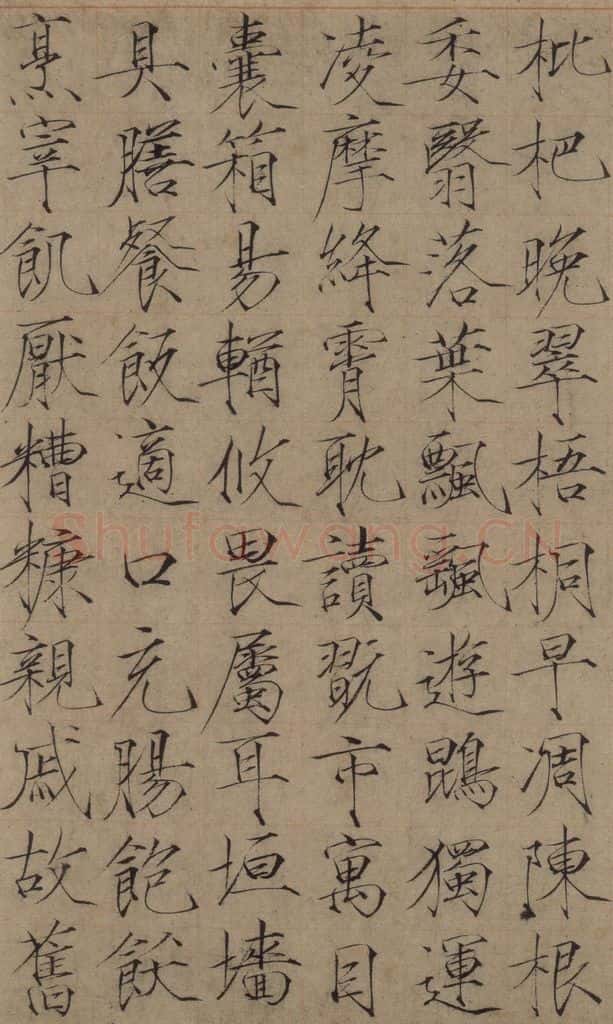 枇杷晚翠梧桐早凋陳根
委翳落葉飄颻遊鵾獨運
凌摩絳霄耽讀翫市寓目
囊箱易輶攸畏屬耳垣墻
具膳餐飯適口充腸飽飫
烹宰飢厭糟糠親戚故舊
Shufawang.CN